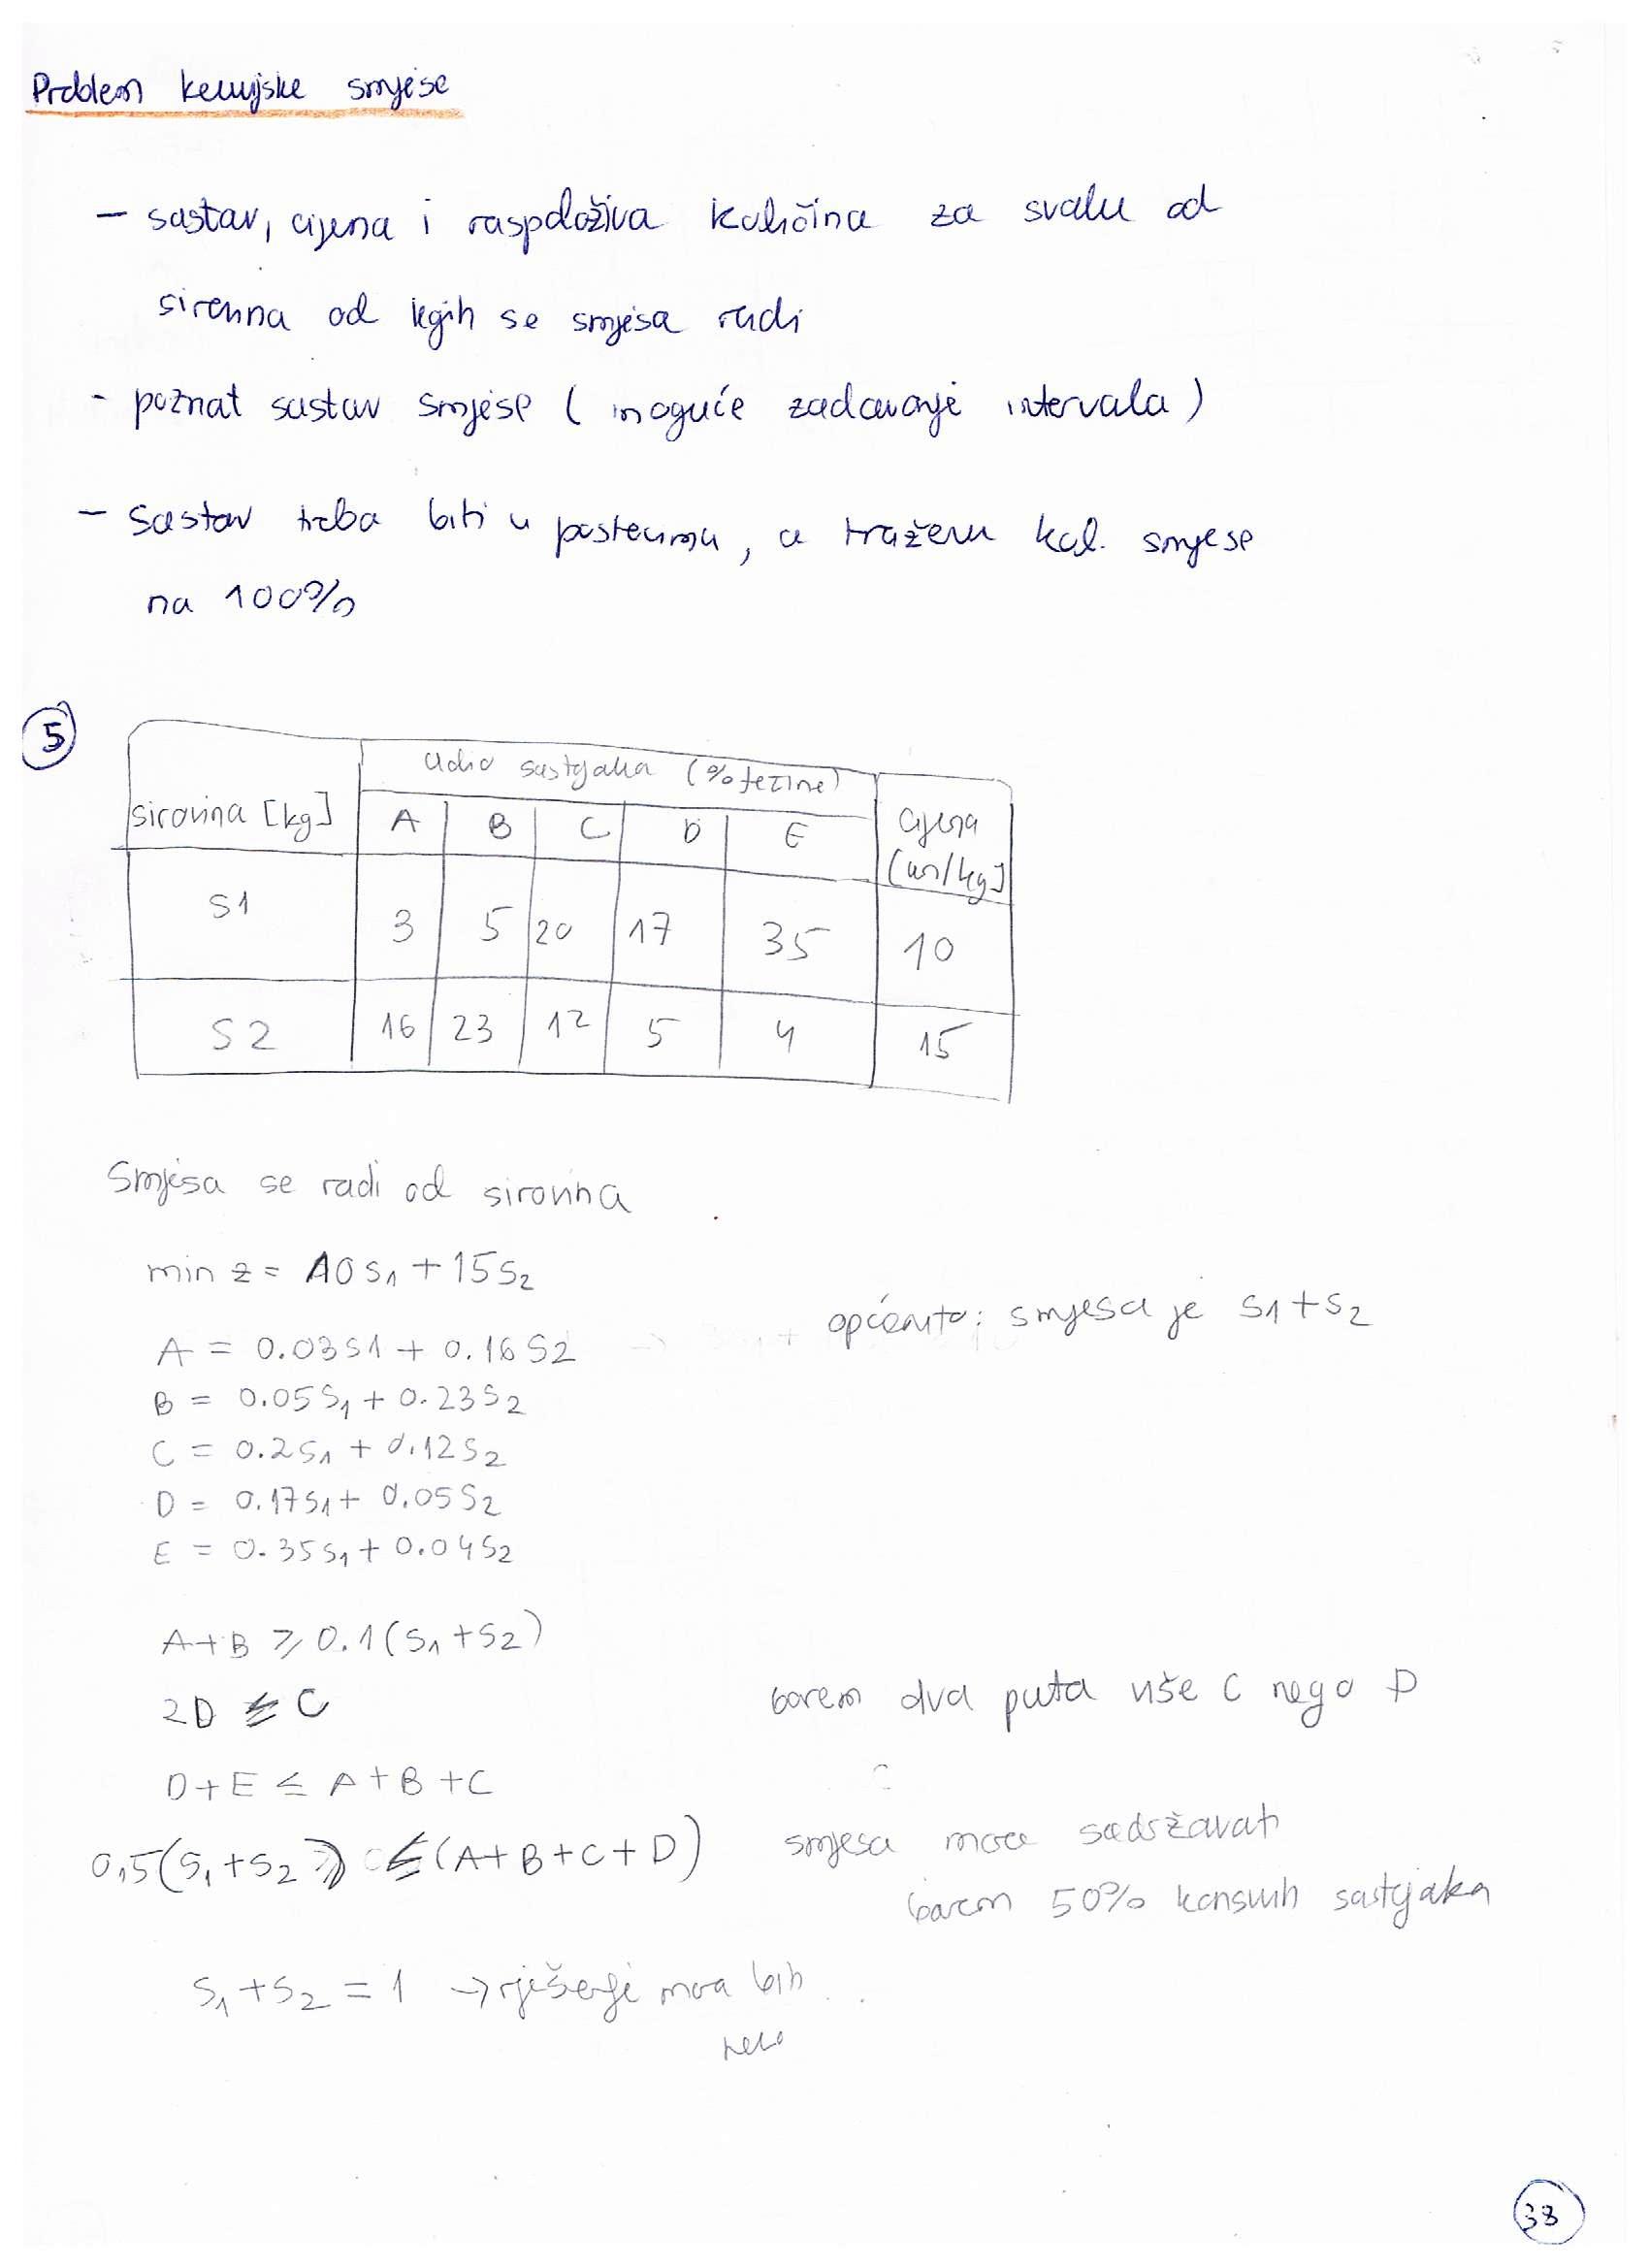 Problem kemijske smjese
– sastav, cijena i raspoloživa količina za svaku od
sirovina od kojih se smjesa radi
- poznat sastav smjese ( moguće zadavanje intervala )
– Sastav treba biti u postocima, a traženu kol. smjese
na 100%
5
sirovina [kg] Udio sastojaka (% težine) cijena [kn/kg]
A B C D E
S1 3 5 20 17 35 10
S2 16 23 12 5 4 15
Smjesa se radi od sirovina
min z = 10 S1 + 15 S2
općenito: smjesa je S1 + S2
A = 0.03S1 + 0.16 S2
B = 0.05 S1 + 0.23 S2
C = 0.2 S1 + 0.12 S2
D = 0.17 S1 + 0.05 S2
E = 0.35 S1 + 0.04 S2
A+B ≥ 0.1 (S1 + S2)
2D ≤ C barem dva puta više C nego D
D+E ≤ A+B+C
0,5(S1 + S2) ≤ (A+B+C+D) smjesa mora sadržavati
barem 50% korisnih sastojaka
S1 + S2 = 1 → rješenje mora biti
38